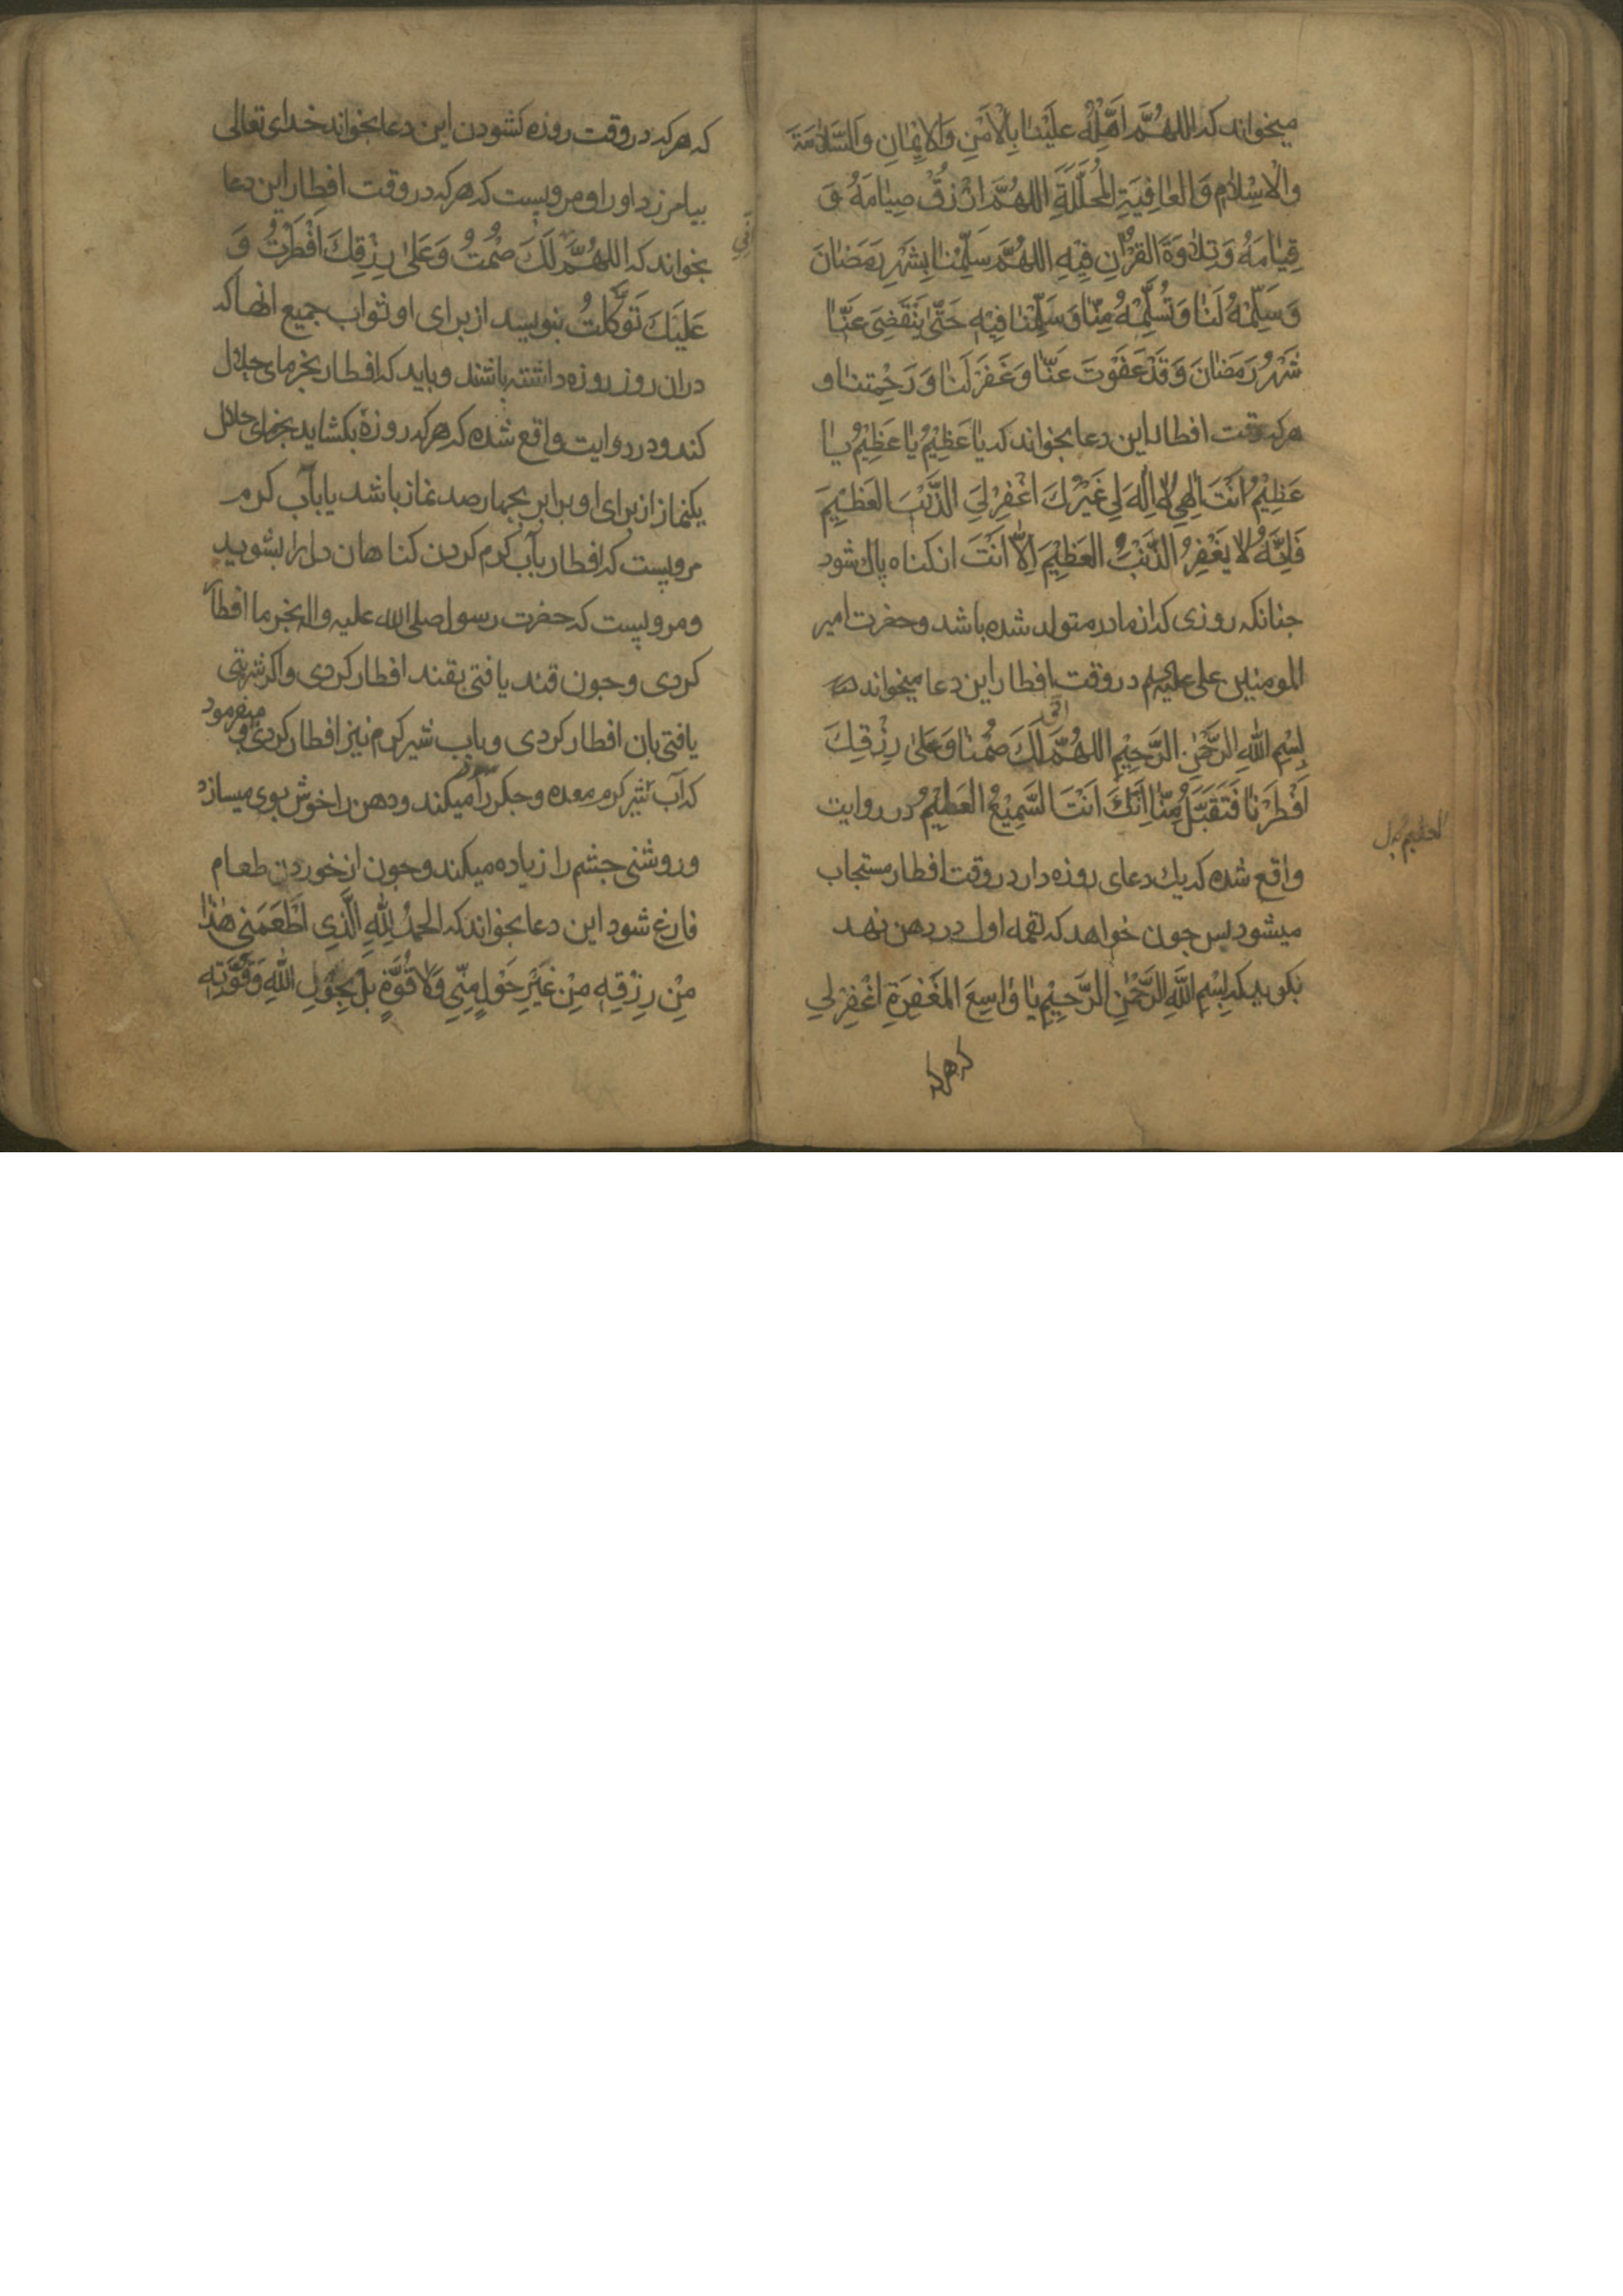 میخواند که اللهُمَّ اَهِلَّهُ عَلَیْنٰا بِالْاَمْنِ وَالْاِیْمٰانِ وَالسَّلٰامَةِ
وَالْاِسْلٰامِ وَالعٰافِیَةِ المُجَلَّلَةِ اللهُمَّ ارْزُقْ صِیٰامَهُ وَ
قِیٰامَهُ وَتِلٰاوَةَ القُرْاٰنِ فِیْهِ اللهُمَّ سَلِّمْنٰا بِشَهْرِ رَمَضٰانَ
وَسَلِّمْهُ لَنٰا وَتَسَلَّمْهُ مِنّٰا وَسَلِّمْنٰا فِیْهِ حَتّٰی یَنْقَضِیَ عَنّٰا
شَهْرُ رَمَضٰانَ وَقَدْ عَفَوْتَ عَنّٰا وَغَفَرْتَ لَنٰا وَرَحِمْتَنٰا و
هرکه وقت افطار این دعا بخواند که یٰا عَظِیْمُ یٰا عَظِیْمُ یٰا
عَظِیْمُ اَنْتَ اِلٰهِی لٰا اِلٰهَ لِی غَیْرُكَ اغْفِرْ لِیَ الذَّنْبَ العَظِیْمَ
فَاِنَّهُ لٰا یَغْفِرُ الذَّنْبَ العَظِیْمَ اِلّٰا اَنْتَ از کناه پاك شود
جنانکه روزی که از مادر متولد شده باشد وحضرت امیر
المومنین علی علیه‌السلم در وقت افطار این دعا میخواند که
بِسْمِ اللّٰهِ الرَّحْمٰنِ الرَّحِیْمِ اللهُمَّ لَكَ صُمْنٰا وَعَلٰی رِزْقِكَ
اَفْطَرْنٰا فَتَقَبَّلْ مِنّٰا اِنَّكَ اَنْتَ السَّمِیْعُ العَظِیْمُ در روایت
واقع شده که یك دعای روزه دار در وقت افطار مستجاب
میشود پس جون خواهد که لقمه اول در دهن نهد
بکوید که بِسْمِ اللّٰهِ الرَّحْمٰنِ الرَّحِیْمِ یٰا وٰاسِعَ المَغْفِرَةِ اغْفِرْ لِی
که هرکه
که هرکه در وقت روزه کشودن این دعا بخواند خدای تعالی
بیامرزد او را و مرویست که هرکه در وقت افطار این دعا
بخواند که اللهُمَّ لَكَ صُمْتُ وَعَلٰی رِزْقِكَ اَفْطَرْتُ وَ
عَلَیْكَ تَوَکَّلْتُ بنویسد از برای او ثواب جمیع انها که
دران روز روزه داشته باشند و باید که افطار بخرمای حلال
کند و در روایت واقع شده که هرکه روزهٔ بکشاید بخرمای حلال
یکنماز از برای او برابر بجهارصد نماز باشد یا بآب کرم
مرویست که افطار بآب کرم کردن کناهان دل را بشوید
و مرویست که حضرت رسول صلی الله علیه واله بخرما افطار
کردی و جون قند یافتی بقند افطار کردی و اکر شربتی
یافتی بان افطار کردی و باب شیر کرم نیز افطار کردی و میفرمود
که آب شیر کرم معده و جکر را میکند و دهن را خوش بوی میسازد
و روشنی جشم را زیاده میکند و جون از خوردن طعام
فارغ شود این دعا بخواند که الحمدُ لِلّٰهِ الَّذِی اَطْعَمَنِی هٰذٰا
مِنْ رِزْقِهِ مِنْ غَیْرِ حَوْلٍ مِنِّی وَلٰا قُوَّةٍ بَلْ بِحَوْلِ اللّٰهِ وَقُوَّتِهِ